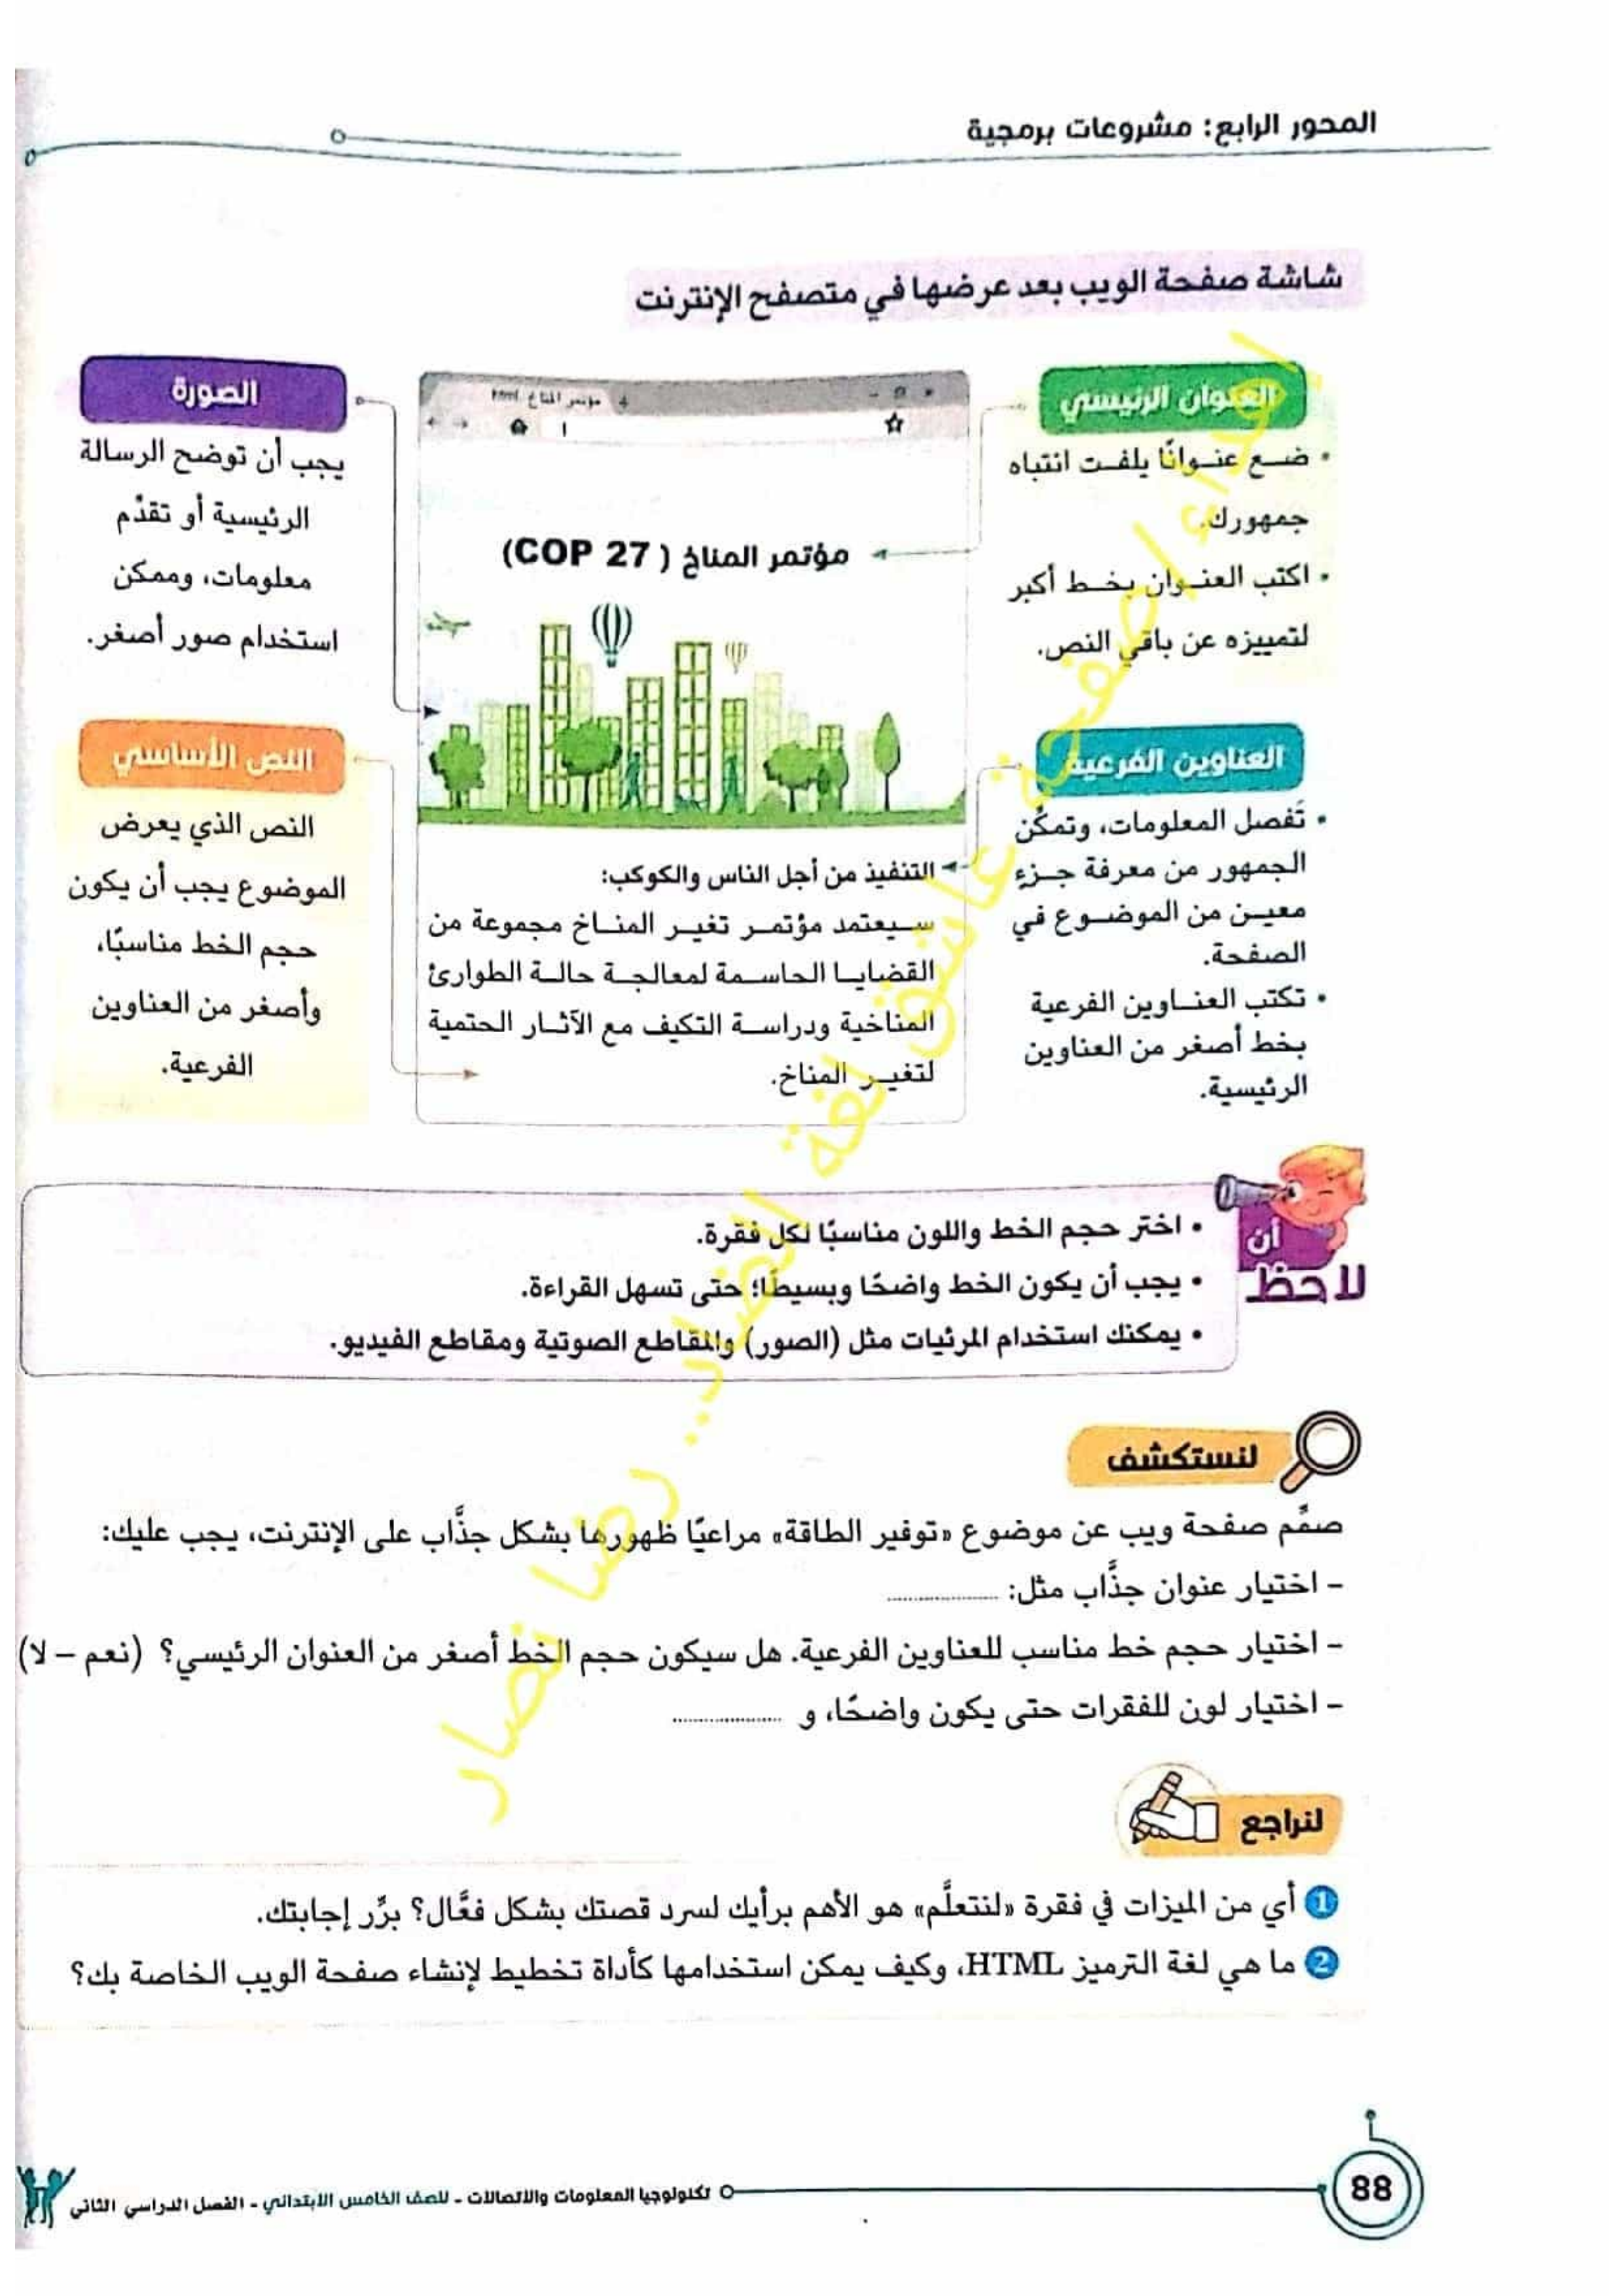 المحور الرابع: مشروعات برمجية
شاشة صفحة الويب بعد عرضها في متصفح الإنترنت
العنوان الرئيسي
• ضع عنوانًا يلفت انتباه
جمهورك.
• اكتب العنوان بخط أكبر
لتمييزه عن باقي النص.
العناوين الفرعية
• تَفصل المعلومات، وتمكِّن
الجمهور من معرفة جزءٍ
معين من الموضوع في
الصفحة.
• تكتب العناوين الفرعية
بخط أصغر من العناوين
الرئيسية.
مؤتمر المناخ html
مؤتمر المناخ ( COP 27)
التنفيذ من أجل الناس والكوكب:
سيعتمد مؤتمر تغير المناخ مجموعة من
القضايا الحاسمة لمعالجة حالة الطوارئ
المناخية ودراسة التكيف مع الآثار الحتمية
لتغير المناخ.
الصورة
يجب أن توضح الرسالة
الرئيسية أو تقدِّم
معلومات، وممكن
استخدام صور أصغر.
النص الأساسي
النص الذي يعرض
الموضوع يجب أن يكون
حجم الخط مناسبًا،
وأصغر من العناوين
الفرعية.
لاحظ أن
• اختر حجم الخط واللون مناسبًا لكل فقرة.
• يجب أن يكون الخط واضحًا وبسيطًا؛ حتى تسهل القراءة.
• يمكنك استخدام المرئيات مثل (الصور) والمقاطع الصوتية ومقاطع الفيديو.
لنستكشف
صمِّم صفحة ويب عن موضوع «توفير الطاقة» مراعيًا ظهورها بشكل جذَّاب على الإنترنت، يجب عليك:
– اختيار عنوان جذَّاب مثل: ..................
– اختيار حجم خط مناسب للعناوين الفرعية. هل سيكون حجم الخط أصغر من العنوان الرئيسي؟ (نعم – لا)
– اختيار لون للفقرات حتى يكون واضحًا، و ..................
لنراجع
1 أي من الميزات في فقرة «لنتعلَّم» هو الأهم برأيك لسرد قصتك بشكل فعَّال؟ برِّر إجابتك.
2 ما هي لغة الترميز HTML، وكيف يمكن استخدامها كأداة تخطيط لإنشاء صفحة الويب الخاصة بك؟
88
تكنولوجيا المعلومات والاتصالات - للصف الخامس الابتدائي - الفصل الدراسي الثاني
إهداء لصفحة عاشق لغة الضاد.. رضا نصار